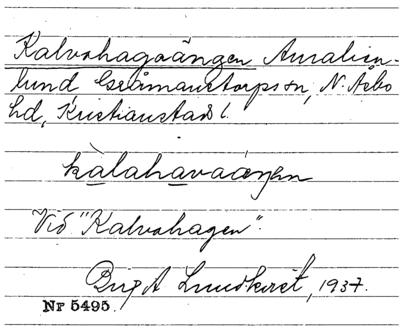 Kalvahagaängen Amalien-
lund Gråmanstorps sn, N. Åsbo
hd, Kristianstads l.
kàlahavaáeŋen
Vid "Kalvahagen".
Birgit Lundkvist, 1937.
Nr 5495.